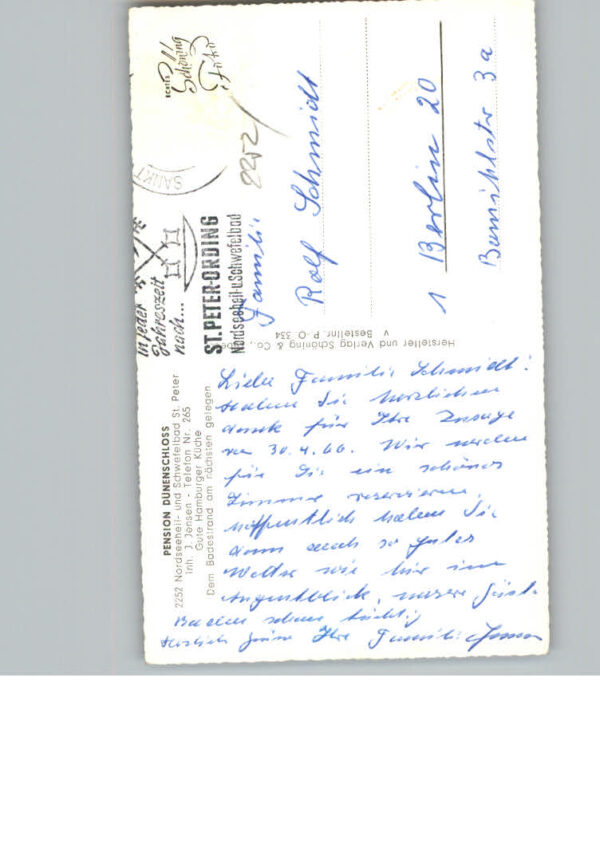 PENSION DÜNENSCHLOSS
2252 Nordseeheil- und Schwefelbad St. Peter
Inh. J. Jensen - Telefon Nr. 265
Gute Hamburger Küche
Dem Badestrand am nächsten gelegen
Liebe Familie Schmidt!
Haben Sie herzlichen
Dank für Ihre Zusage
30.4.66. Wir werden
für Sie ein schönes
Zimmer reservieren,
hoffentlich haben Sie
dann auch so gutes
Wetter wie hier im
Augenblick, unsere Gäste
Baden schon tüchtig
Herzliche Grüße Ihre Familie Jensen
Hersteller und Verlag Schöning & Co.,
Bestellnr. P. O. 334
In jeder
Jahreszeit
nach...
ST. PETER-ORDING
Nordseeheil- u. Schwefelbad
SANKT
2252
ECHTES
Schöning
Foto
Familie
Rolf Schmidt
1 Berlin 20
3a